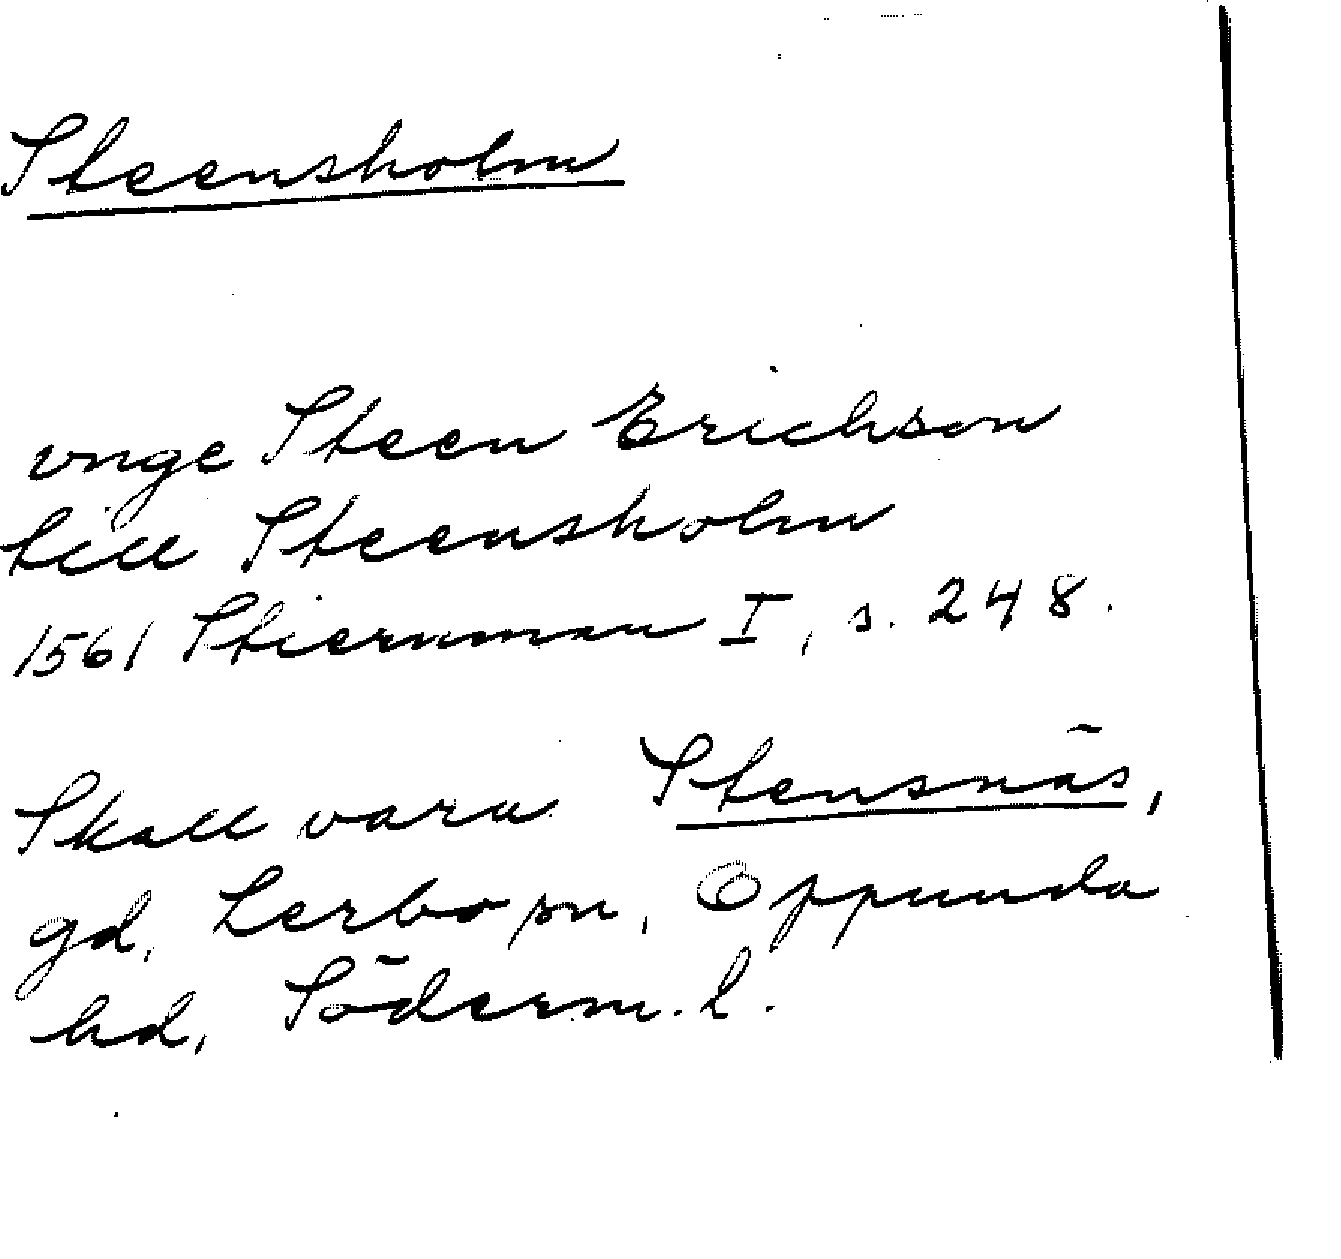 Steensholm
vnge Steen Erichson
till Steensholm
1561 Stiernman I, s. 248.
Skall vara Stensnäs,
gd, Lerbo sn, Oppunda
hd, Söderm. l.